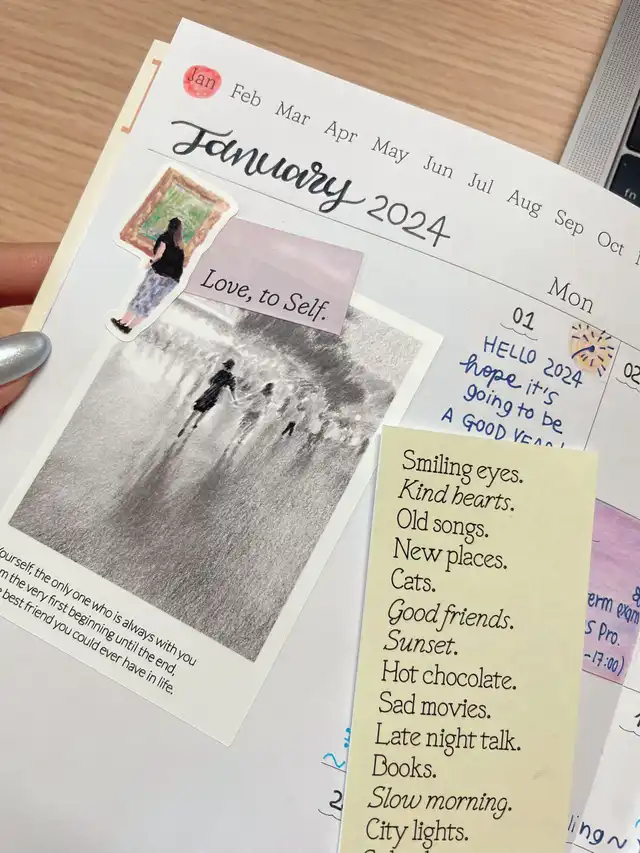 Jan Feb Mar Apr May Jun Jul Aug Sep Oct
January 2024
Love, to Self.
Mon
01
02
HELLO 2024
hope it's
going to be
A GOOD YEAR!
Yourself, the only one who is always with you
from the very first beginning until the end,
best friend you could ever have in life.
Smiling eyes.
Kind hearts.
Old songs.
New places.
Cats.
Good friends.
Sunset.
Hot chocolate.
Sad movies.
Late night talk.
Books.
Slow morning.
City lights.
erm exam
S Pro.
-17:00)
2
ling~
fn